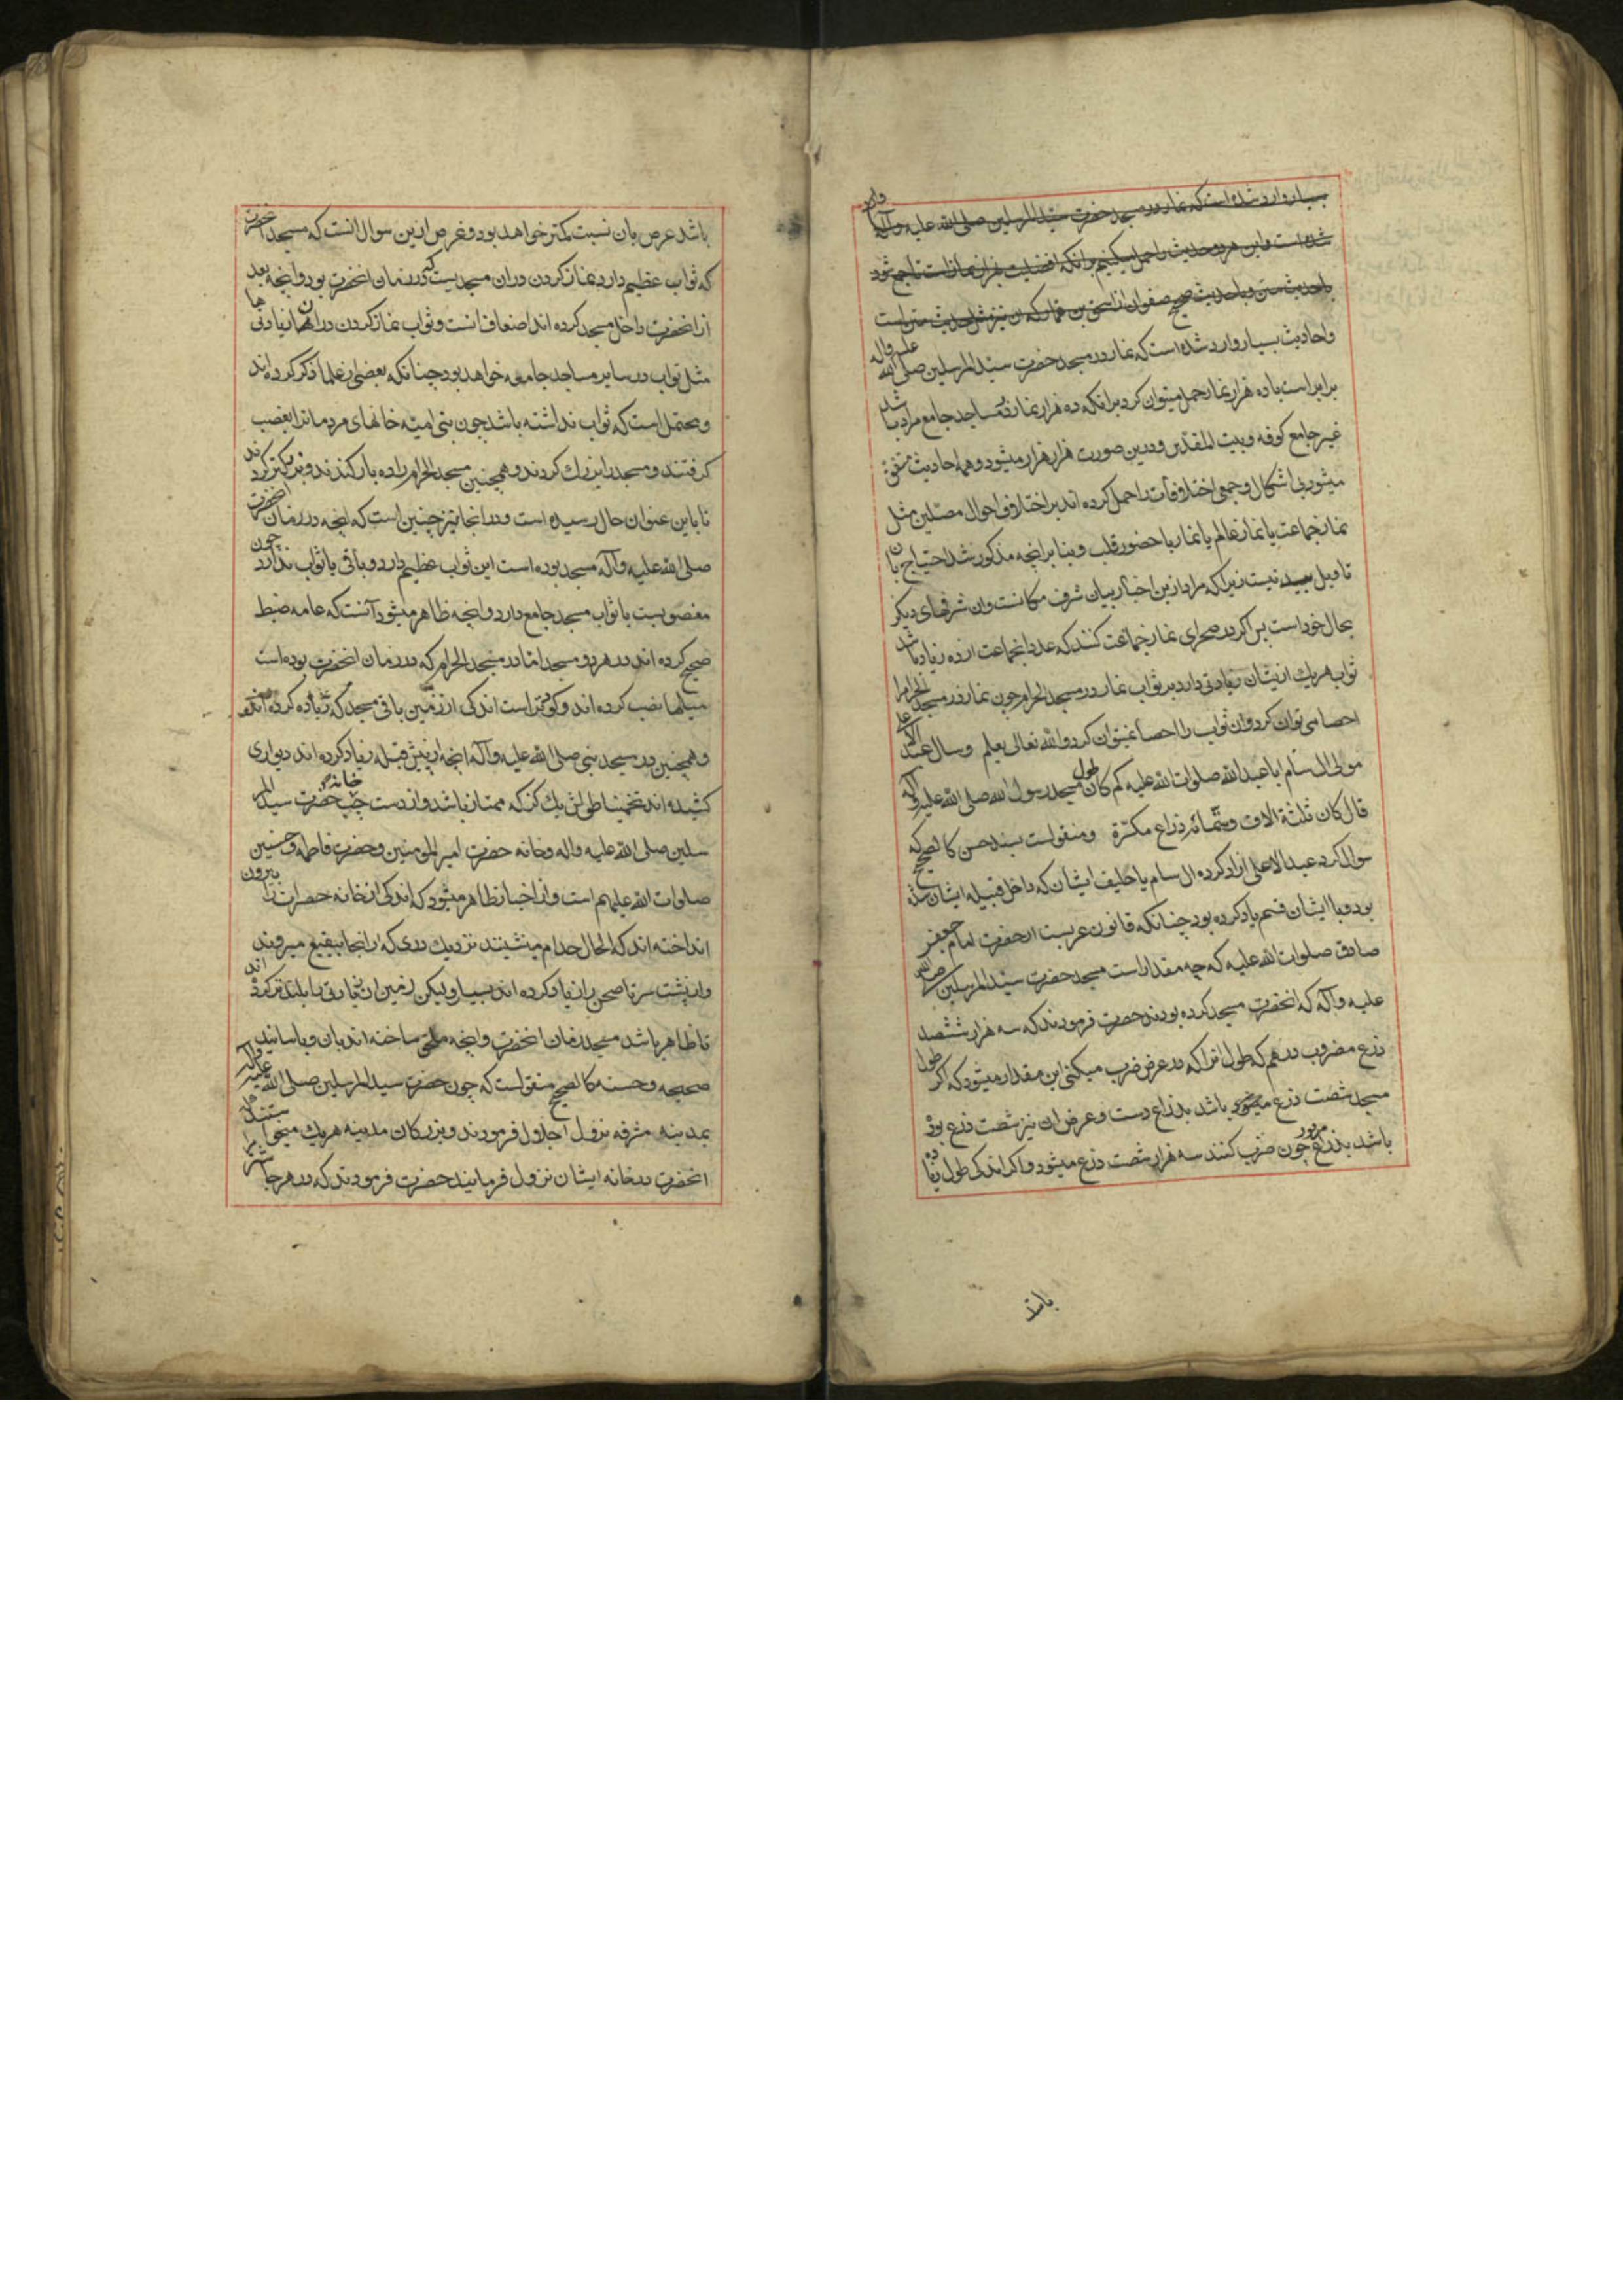 بسیار وارد شده است که نماز در مسجد حضرت سید المرسلین صلی الله علیه وآله وارد
شده است و این هر دو حدیث را حمل میکنیم بر انکه افضلیت هزار نماز است تا جمع شود
با حدیث متن و با حدیث صحیح صفوان از اسحق بن عمار که ان نیز مثل حدیث متن است
واحادیث بسیار وارد شده است که نماز در مسجد حضرت سید المرسلین صلی الله علیه واله
برابر است با ده هزار نماز حمل میتوان کرد بر انکه ده هزار نماز مساجد جامع مراد باشد
غیر جامع کوفه و بیت المقدس و درین صورت هزار هزار میشود و همه احادیث متفق
میشود بی اشکال و جمعی اختلافات را حمل کرده اند بر اختلاف احوال مصلین مثل
نماز جماعت یا نماز عالم یا نماز با حضور قلب و بنا بر انچه مذکور شد احتیاج بان
تاویل نیست زیرا که مراد ازین اخبار بیان شرف مکانست وان شرفهای دیکر
بحال خود است پس اکر در صحرای نماز جماعت کنند که عدد انجماعت از ده زیاد باشد
ثواب هر یک ازیشان زیادتی دارد بر ثواب نماز در مسجد الحرام چون نماز در مسجد الحرام را
احصا می توان کرد وان ثواب را احصا نمیتوان کرد والله تعالی یعلم وسال عبد الاعلی
مولی ال سام ابا عبد الله صلوات الله علیه کم کان طول مسجد رسول الله صلی الله علیه وآله
قال کان ثلثة الاف وستمائة ذراع مکسرة ومنقولست بسند حسن کالصحیح که
سوال کرد عبد الاعلی ازاد کرده ال سام یا حلیف ایشان که داخل قبیله ایشان شده
بود و با ایشان قسم یاد کرده بود چنانکه قانون عربست از حضرت امام جعفر
صادق صلوات الله علیه که چه مقدار است مسجد حضرت سید المرسلین صلی الله
علیه وآله که انحضرت مسجد کرده بودند حضرت فرمودند که سه هزار ششصد
ذرع مضروب در هم که طول انرا که در عرض ضرب میکنی این مقدار میشود که اکر طول
مسجد شصت ذرع باشد بذراع دست وعرض ان نیز شصت ذرع بوده
باشد بذراع مزبور چون ضرب کنند سه هزار شصت ذرع میشود و اکر اندکی طول زیاده
باشد
باشد عرض بان نسبت کمتر خواهد بود وغرض ازین سوال انست که مسجد انحضرت
که ثواب عظیم دارد نماز کردن دران مسجدیست که در زمان انحضرت بود وانچه بعد
از انحضرت داخل مسجد کرده اند اضعاف انست وثواب نماز کردن در انها زیادتی
مثل ثواب در سایر مساجد جامعه خواهد بود چنانکه بعضی از علما ذکر کرده اند
ومحتمل است که ثواب نداشته باشد چون بنی امیه خانهای مردمانرا بغصب
کرفتند ومسجد را بزرك کردند وهمچنین مسجد الحرام را ده بار کندند وبزرکتر کردند
تا باین عنوان حال رسیده است ودر انجا نیز چنین است که انچه در زمان انحضرت
صلی الله علیه وآله مسجد بوده است این ثواب عظیم دارد وباقی یا ثواب ندارد چون
مغصوبست یا ثواب مسجد جامع دارد وانچه ظاهر میشود آنست که عامه ضبط
صحیح کرده اند در هر دو مسجد اما در مسجد الحرام که در زمان انحضرت بوده است
میلها نصب کرده اند وکوتر است اندکی از زمین باقی مسجد که زیاده کرده اند
وهمچنین در مسجد نبی صلی الله علیه وآله انچه از پیش قبله زیاد کرده اند دیواری
کشیده اند تخمینا طولش یک کز که ممتاز باشد واز دست چپ خانه حضرت سید المر
سلین صلی الله علیه واله وخانه حضرت امیر المومنین وحضرت فاطمه وحسنین
صلوات الله علیهم است واز اخبار ظاهر میشود که اندکی از خانه حضرات را بیرون
انداخته اند که الحال خدام مینشینند نزدیك دری که از انجا ببقیع میروند
واز پشت سر تا صحن را زیاد کرده اند بسیار ولیکن زمین ان زیادتی را بلندتر کرده اند
تا ظاهر باشد مسجد زمان انحضرت وانچه ملحق ساخته اند بان وباسانید
صحیحه وحسنه کالصحیح منقولست که چون حضرت سید المرسلین صلی الله علیه وآله
بمدینه مشرفه نزول اجلال فرمودند وبزرکان مدینه هریك میخواستند که
انحضرت در خانه ایشان نزول فرمایند حضرت فرمودند که در هر جا شتر ما